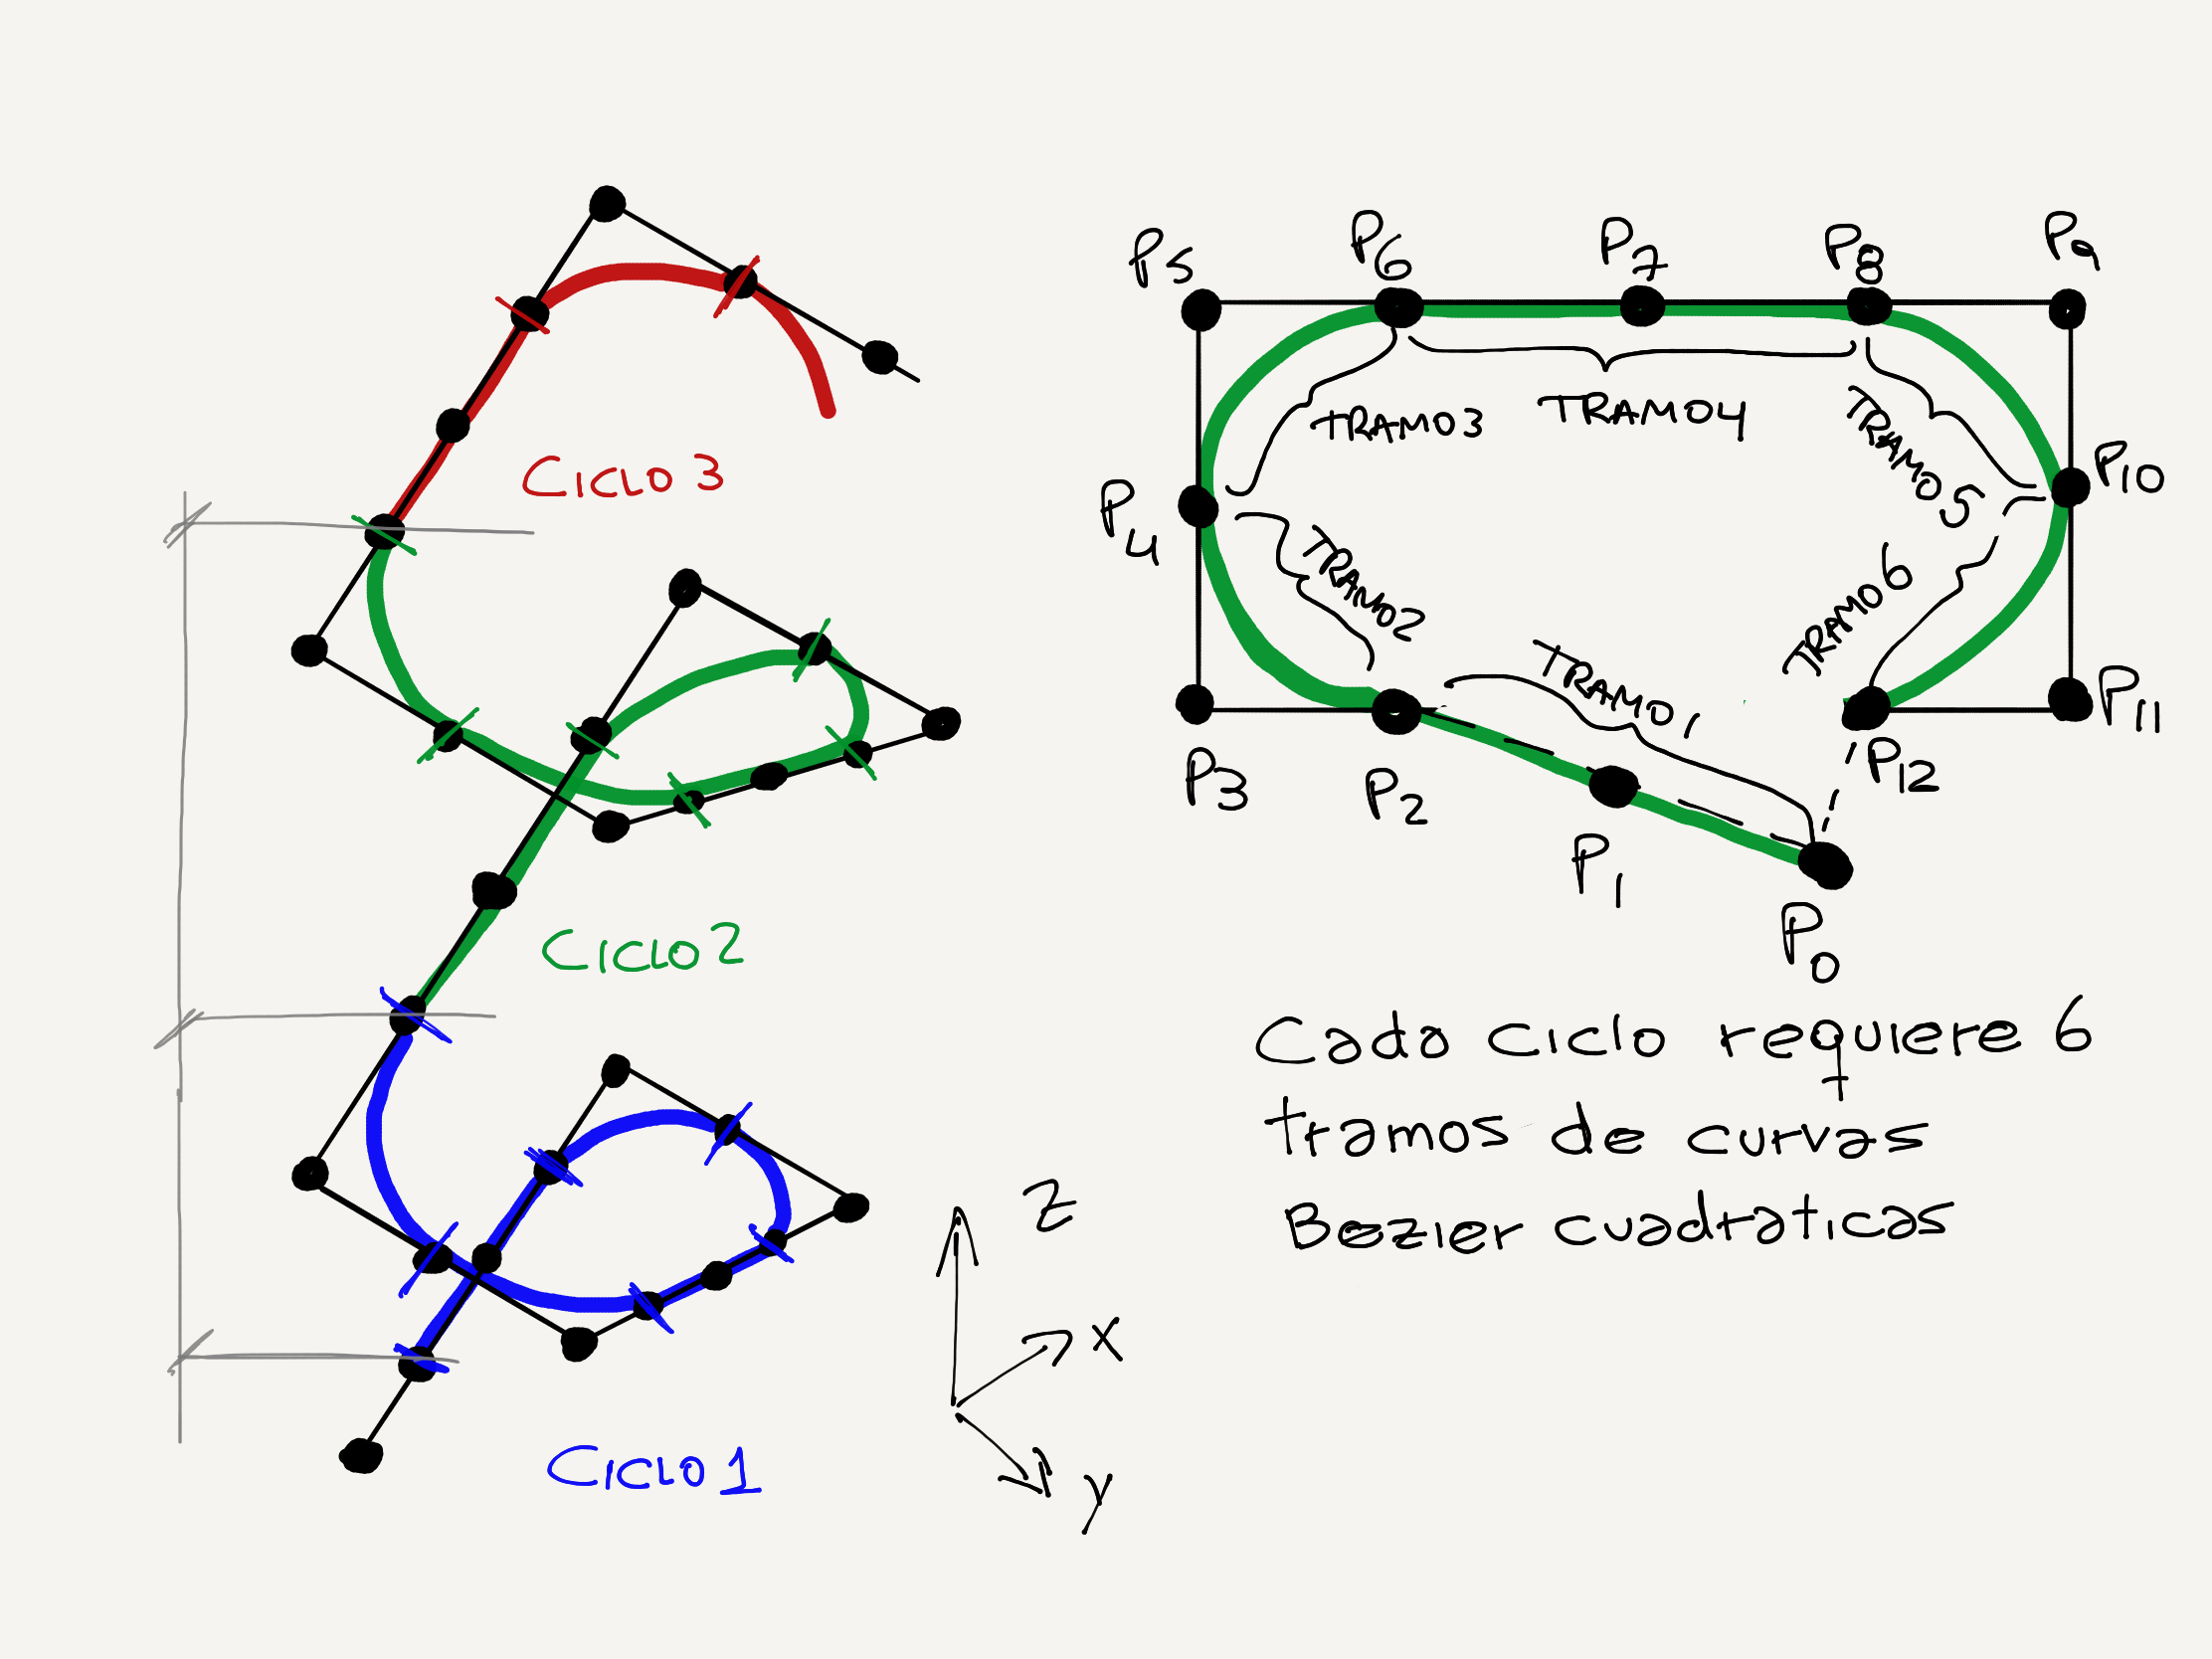 Ciclo3
Ciclo2
Ciclo1
Z
X
y
P5
P6
P7
P8
P9
TRAMO3
TRAMO4
TRAMO5
P4
P10
TRAMO2
TRAMO6
TRAMO1
P3
P2
P11
P12
P1
P0
Cada ciclo requiere 6
tramos de curvas
Bezier cuadraticas